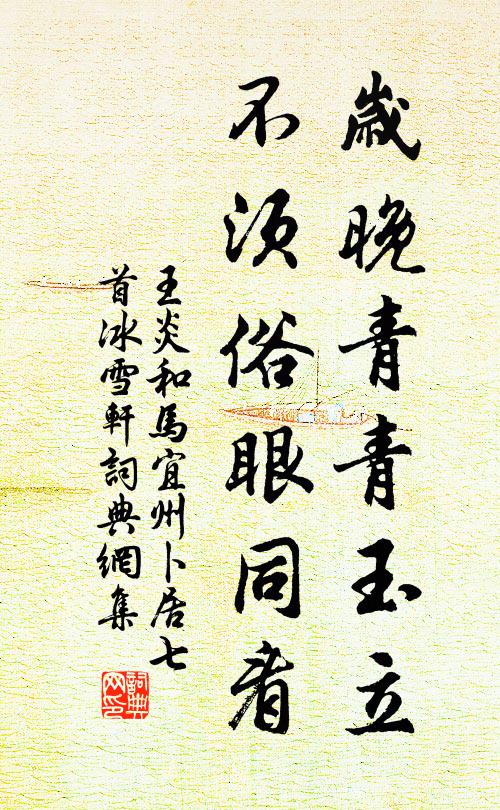 歲晚青青玉立
不須俗眼同看
王炎和馬宜州卜居七
首冰雪軒詞典網集
詞典网印